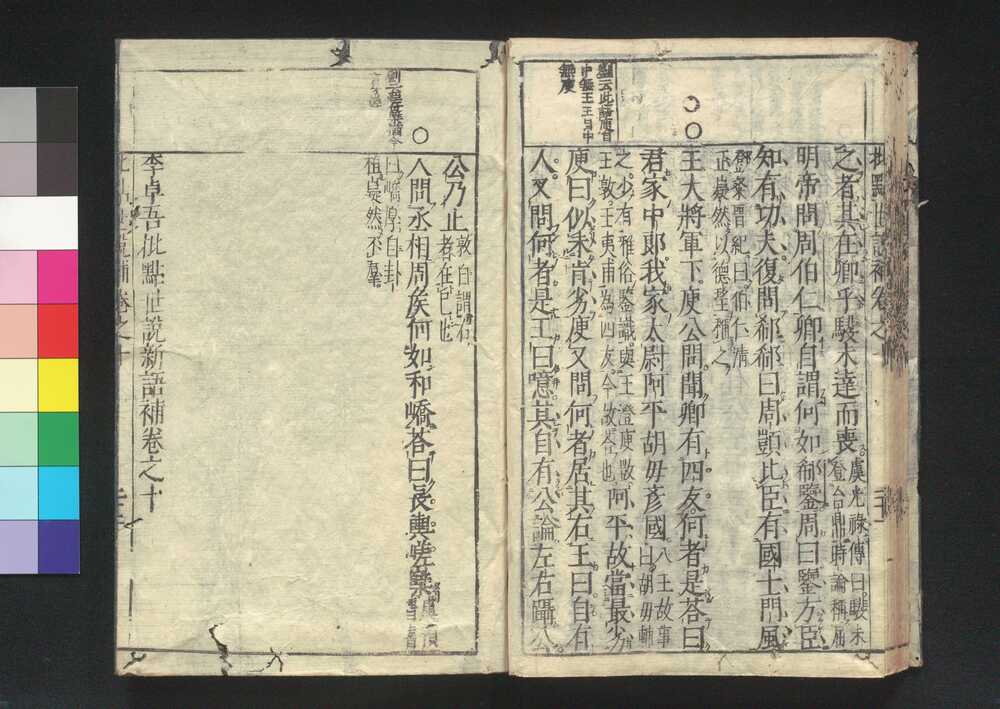 之者其在卿乎駿未達而喪虞光祿傳曰駿未
登台鼎時論稱屈
明帝問周伯仁卿自謂何如郗鑒周曰鑒方臣
如有功夫復問郗郗曰周顗比臣有國士門風
鄧粲晉紀曰伯仁清
正嶷然以德望稱之
王大將軍下庾公問聞卿有四友何者是荅曰
君家中郎我家太尉阿平胡毋彥國八王故事
曰胡毋輔
之少有雅俗鑒識與王澄庾敳
王敦王夷甫為四友今故荅也阿平故當最劣
庾曰似未肯劣庾又問何者居其右王曰自有
人又問何者是王曰噫其自有公論左右躡公
公乃止敦自謂右
者在己也
人問丞相周侯何如和嶠荅曰長輿嵯櫱虞預
晉書
曰嶠厚自封
植嶷然不羣
李卓吾批點世說新語補卷之十